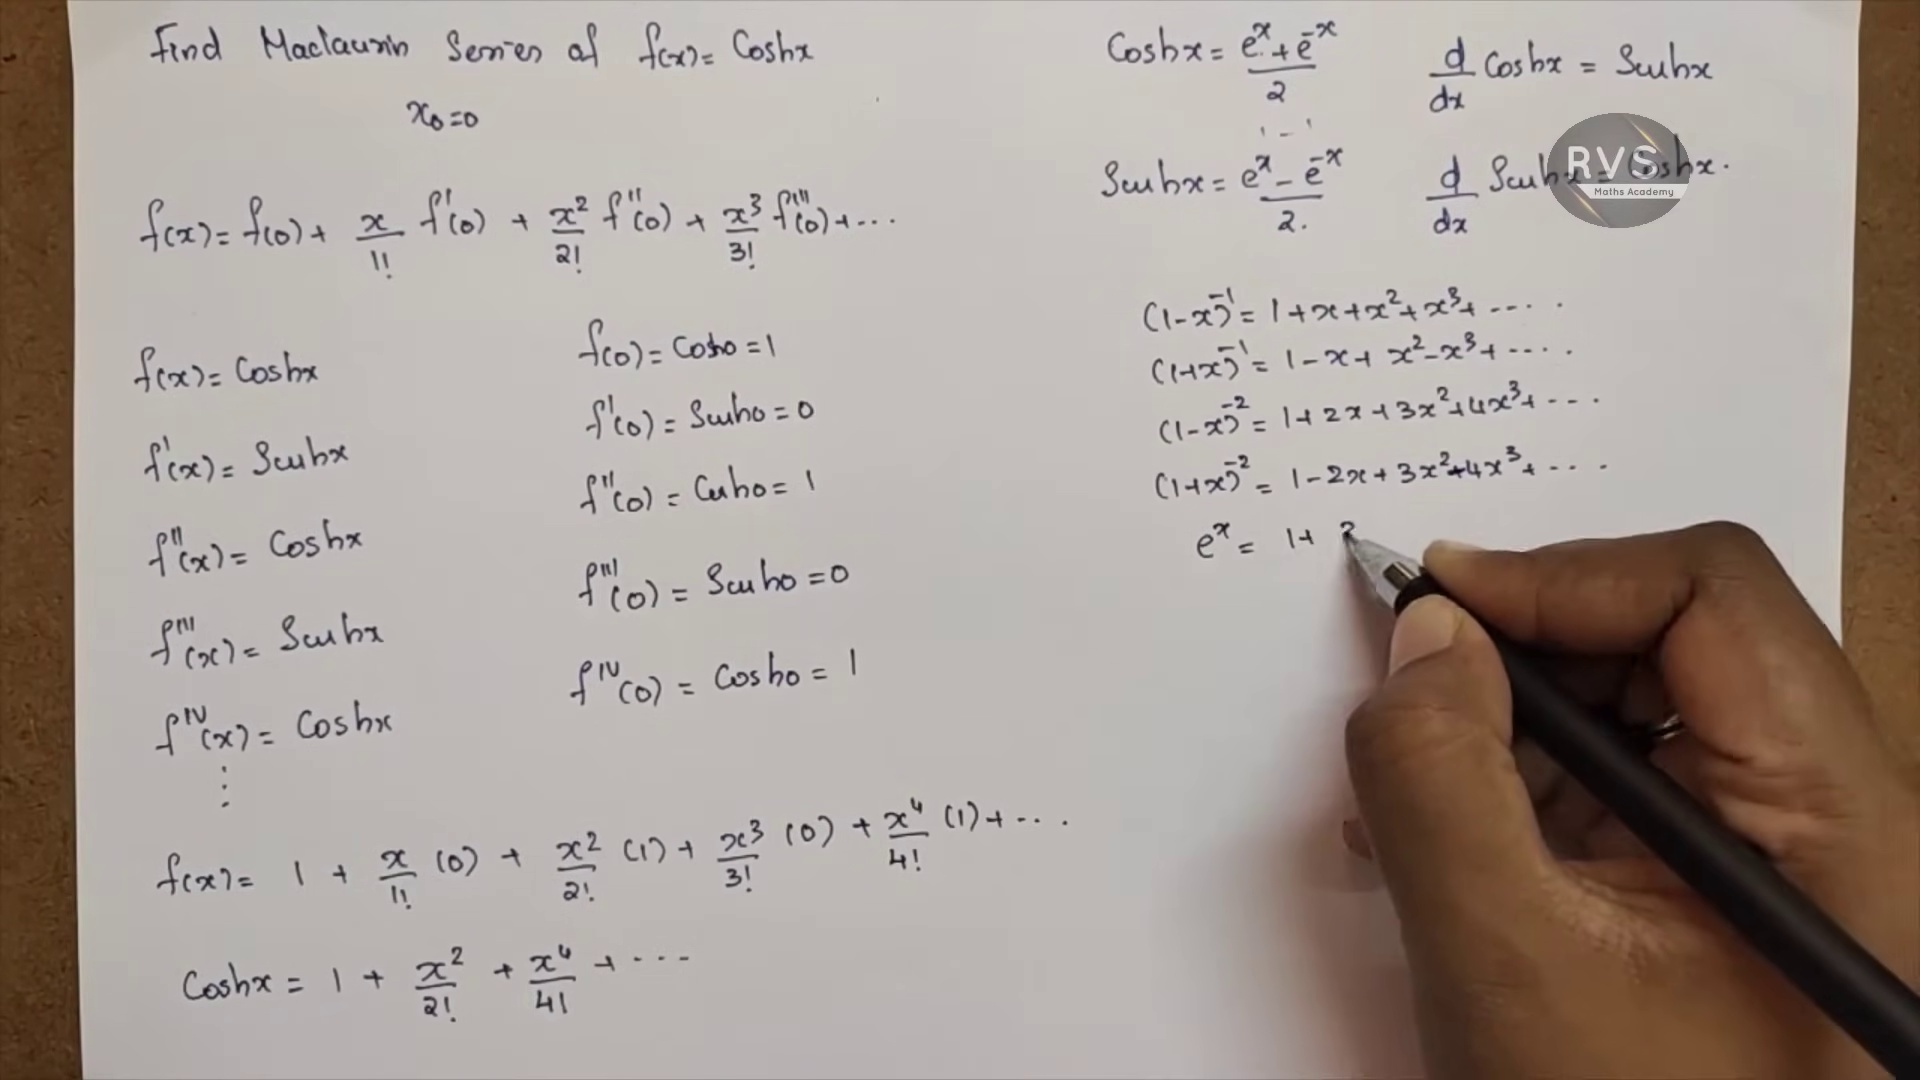 Find Maclaurin Series of f(x) = Coshx
x₀=0
f(x) = f(0) + x/1! f'(0) + x²/2! f''(0) + x³/3! f'''(0) + ...
f(x) = Coshx
f'(x) = Sinhx
f''(x) = Coshx
f'''(x) = Sinhx
f^IV(x) = Coshx
⋮
f(0) = Cosh0 = 1
f'(0) = Sinh0 = 0
f''(0) = Cosh0 = 1
f'''(0) = Sinh0 = 0
f^IV(0) = Cosh0 = 1
f(x) = 1 + x/1! (0) + x²/2! (1) + x³/3! (0) + x⁴/4! (1) + ...
Coshx = 1 + x²/2! + x⁴/4! + ...
Coshx = (e^x + e^-x)/2
d/dx Coshx = Sinhx
Sinhx = (e^x - e^-x)/2.
d/dx Sinhx = Coshx.
RVS
Maths Academy
(1-x)^-1 = 1+x+x²+x³+ ....
(1+x)^-1 = 1-x+x²-x³+ ....
(1-x)^-2 = 1+2x+3x²+4x³+ ...
(1+x)^-2 = 1-2x+3x²-4x³+ ...
e^x = 1+